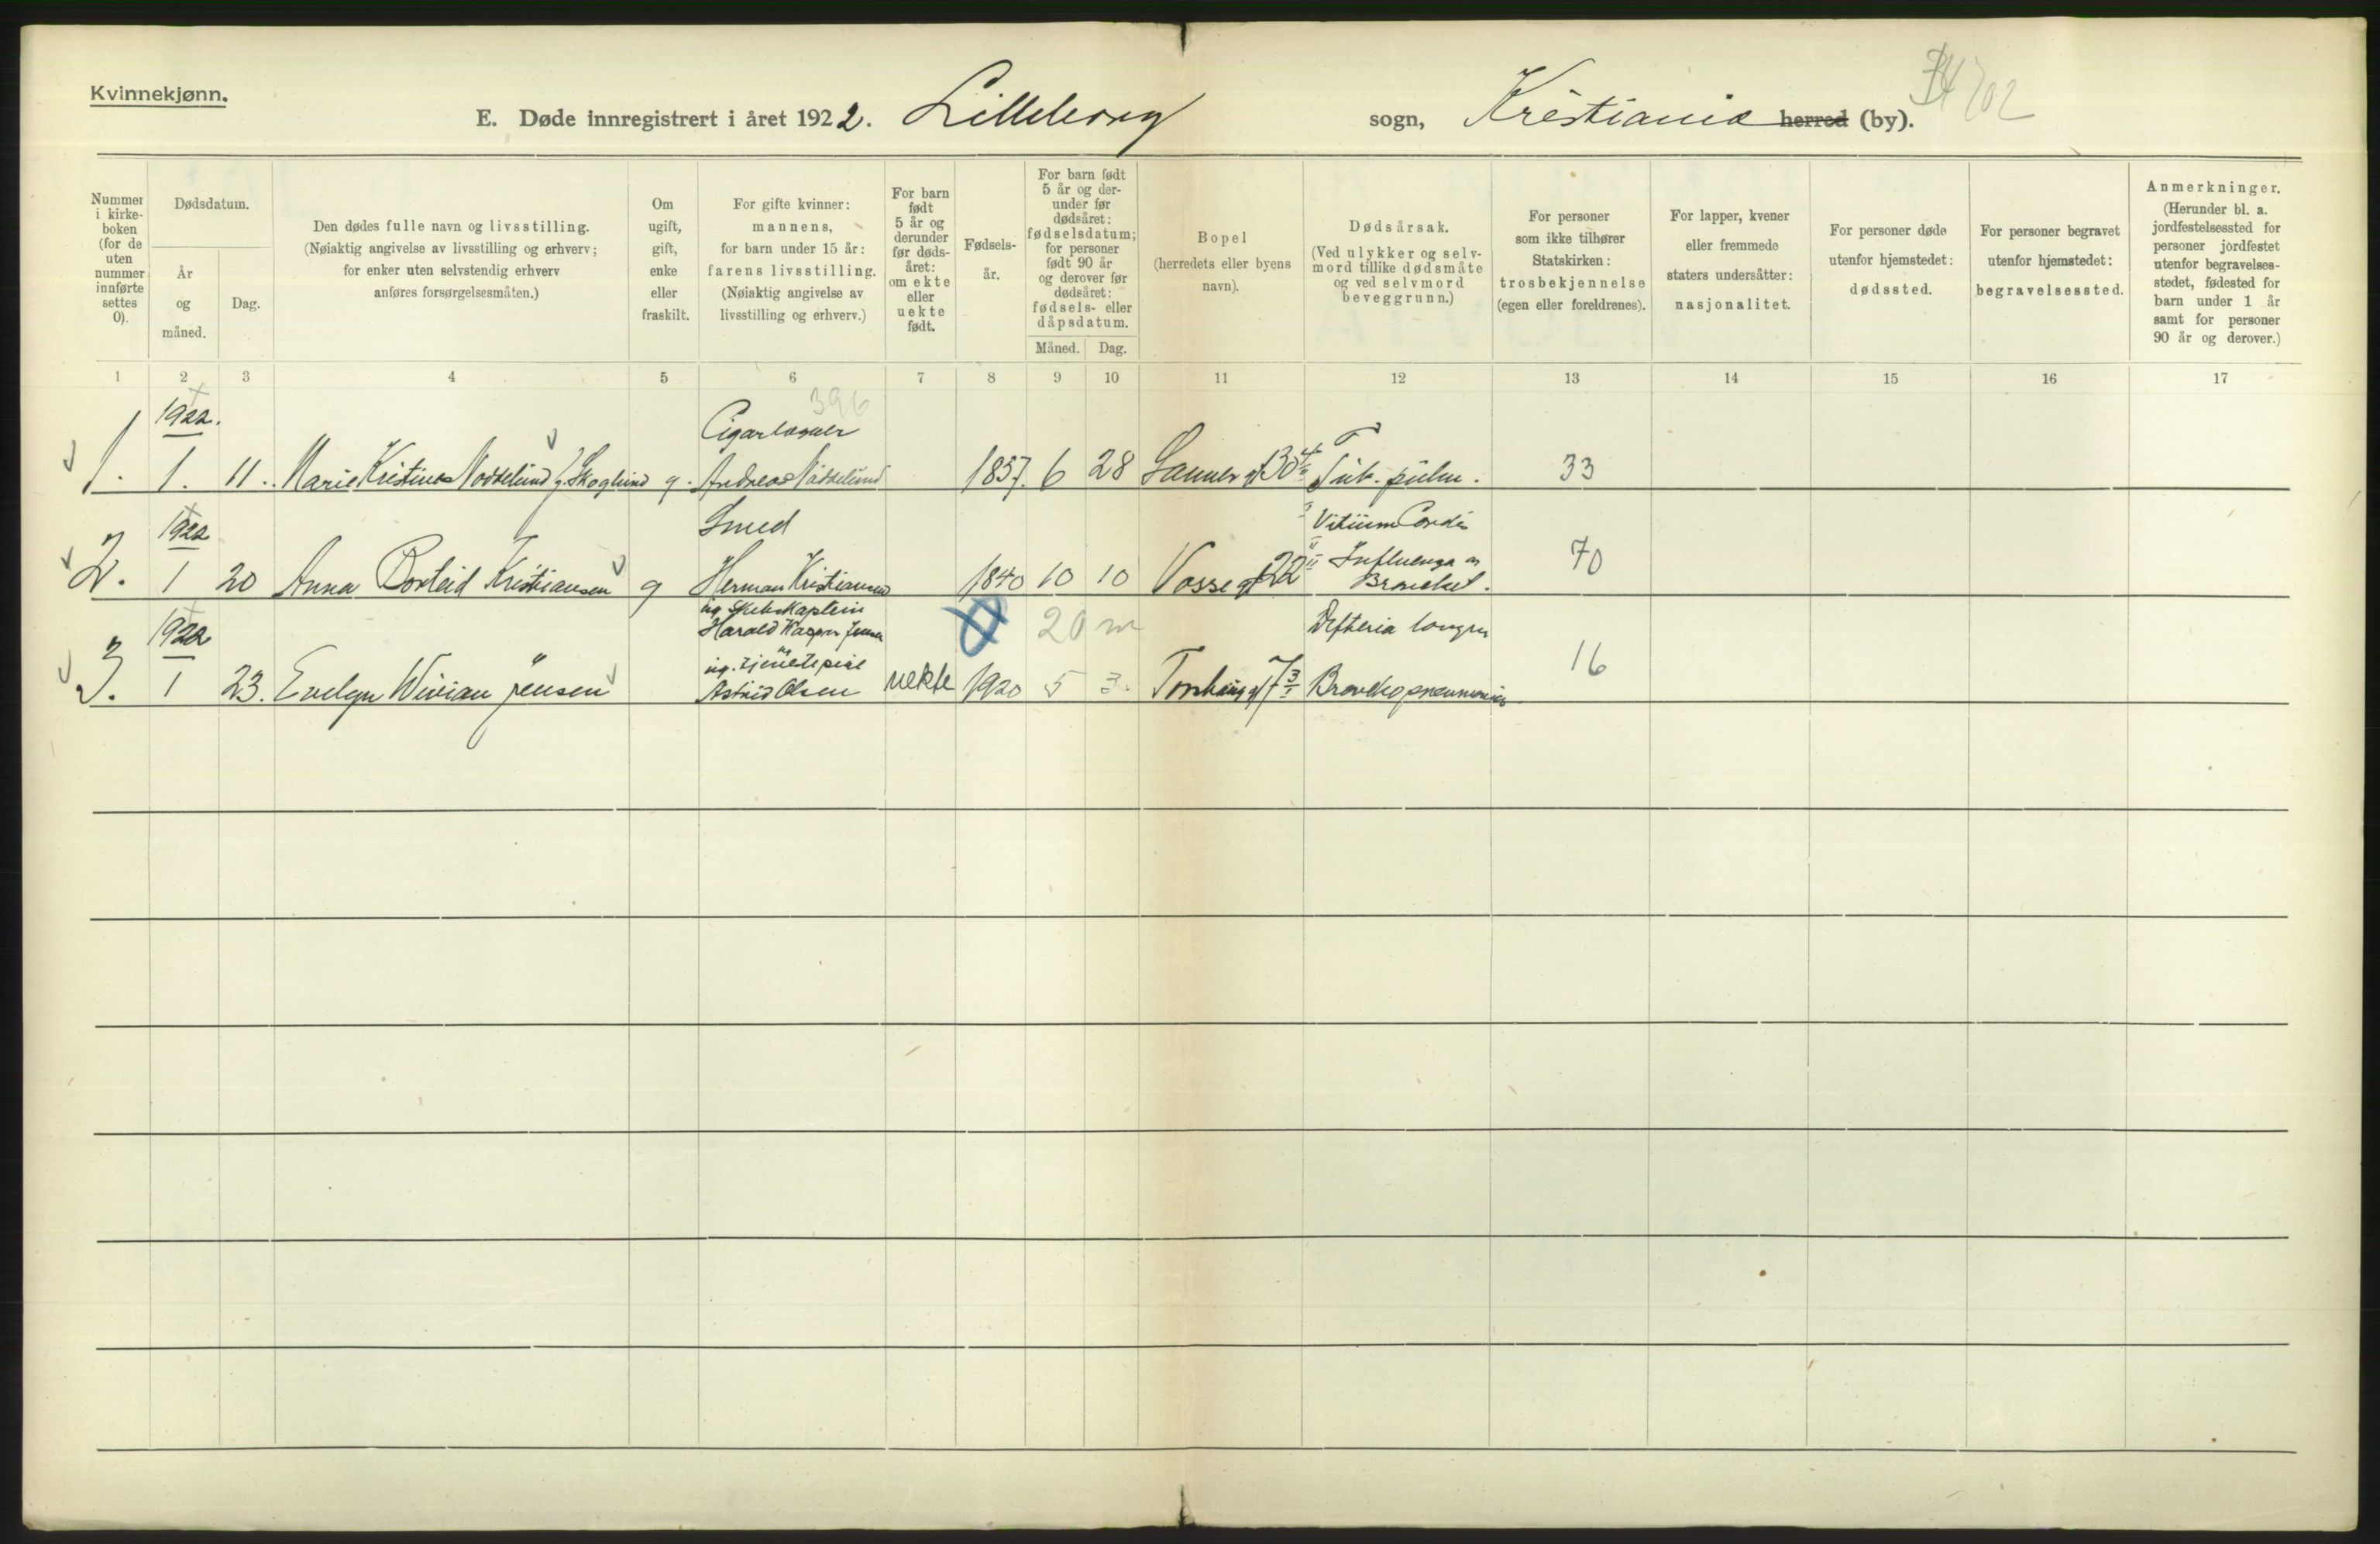 Kvinnekjønn.
E. Døde innregistrert i året 1922. Lilleborg sogn, Kristiania herred (by). 702
Nummer i kirkeboken (for de uten nummer innførte settes 0).
Dødsdatum.
År og måned.
Dag.
Den dødes fulle navn og livsstilling. (Nøiaktig angivelse av livsstilling og erhverv; for enker uten selvstendig erhverv anføres forsørgelsesmåten.)
Om ugift, gift, enke eller fraskilt.
For gifte kvinner: mannens, for barn under 15 år: farens livsstilling. (Nøiaktig angivelse av livsstilling og erhverv.)
For barn født 5 år og derunder før dødsåret: om ekte eller uekte født.
Fødselsår.
For barn født 5 år og derunder før dødsåret: fødselsdatum; for personer født 90 år og derover før dødsåret: fødsels- eller dåpsdatum.
Måned. Dag.
Bopel (herredets eller byens navn).
Dødsårsak. (Ved ulykker og selvmord tillike dødsmåte og ved selvmord beveggrunn.)
For personer som ikke tilhører Statskirken: trosbekjennelse (egen eller foreldrenes).
For lapper, kvener eller fremmede staters undersåtter: nasjonalitet.
For personer døde utenfor hjemstedet: dødssted.
For personer begravet utenfor hjemstedet: begravelsessted.
Anmerkninger. (Herunder bl. a. jordfestelsessted for personer jordfestet utenfor begravelsesstedet, fødested for barn under 1 år samt for personer 90 år og derover.)
1 2 3 4 5 6 7 8 9 10 11 12 13 14 15 16 17
396
1922. Cigarlagmer
1. 1. 11. Marie Kristine Noddelund f. Skoglund g. Andreas Noddelund 1857. 6 28 Sannerg 30 Tub. pulm. 33
1922 Smed Vitium Cordis
2. 1 20 Anna Borleid Kristiansen g Herman Kristiansen 1840 10 10 Vosseg 22 Influenza og Bronchit. 70
1922 ug Skibskaptein Harald Kasper Jensen 20 m Difteria
3. 1 23. Evelyn Wivian Jensen og ug. tjenestepige Astrid Olsen uekte 1920 5 3. Torshaugg 7 Bronchopneumonia 16